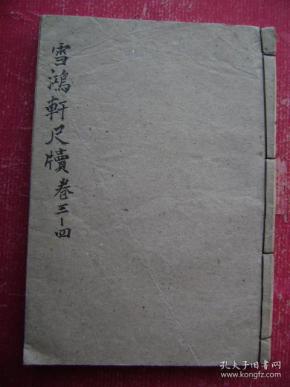 雪鴻軒尺牘卷三-四
孔夫子旧书网